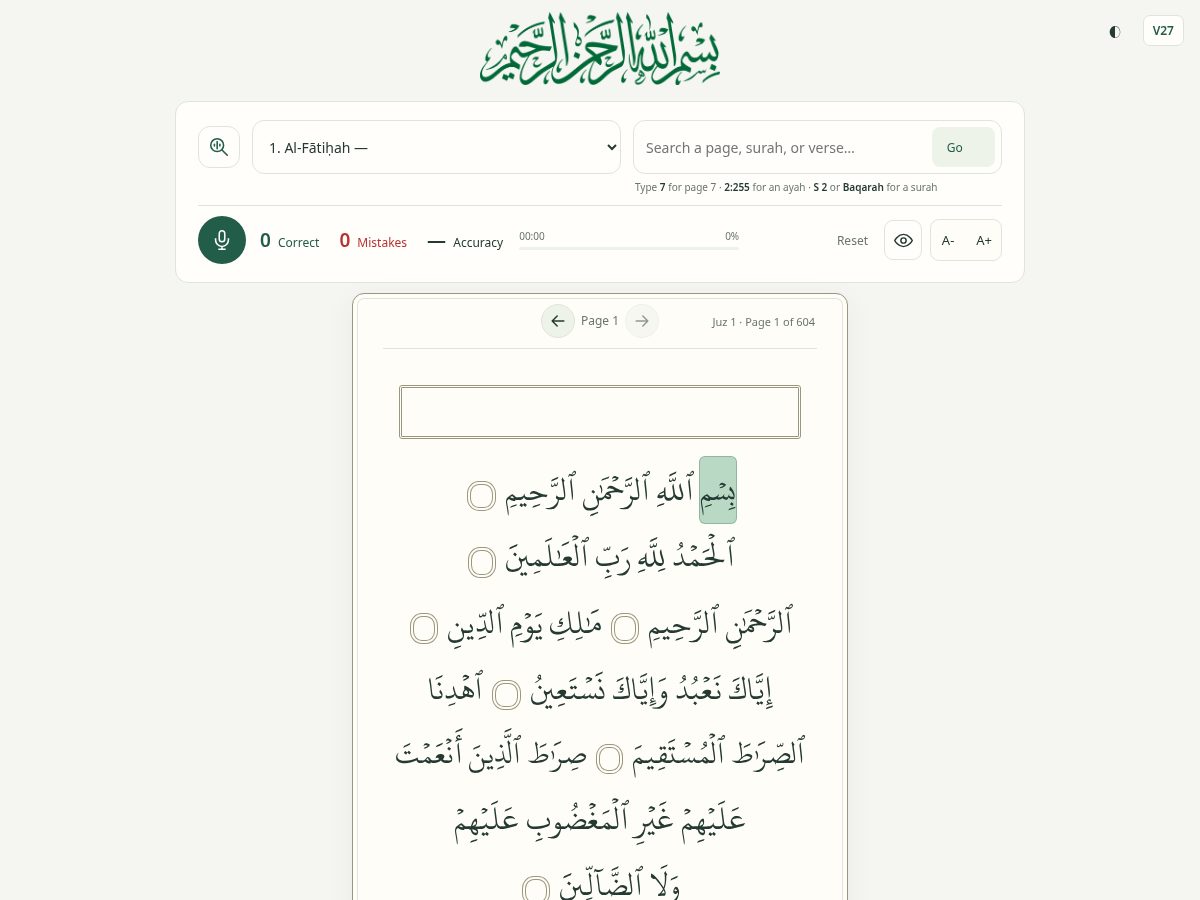 بسم الله الرحمن الرحيم
V27
1. Al-Fātiḥah —
Search a page, surah, or verse...
Go
Type 7 for page 7 · 2:255 for an ayah · S 2 or Baqarah for a surah
0 Correct
0 Mistakes
— Accuracy
00:00
0%
Reset
A-
A+
Page 1
Juz 1 · Page 1 of 604
بِسۡمِ ٱللَّهِ ٱلرَّحۡمَٰنِ ٱلرَّحِيمِ
ٱلۡحَمۡدُ لِلَّهِ رَبِّ ٱلۡعَٰلَمِينَ
ٱلرَّحۡمَٰنِ ٱلرَّحِيمِ مَٰلِكِ يَوۡمِ ٱلدِّينِ
إِيَّاكَ نَعۡبُدُ وَإِيَّاكَ نَسۡتَعِينُ ٱهۡدِنَا
ٱلصِّرَٰطَ ٱلۡمُسۡتَقِيمَ صِرَٰطَ ٱلَّذِينَ أَنۡعَمۡتَ
عَلَيۡهِمۡ غَيۡرِ ٱلۡمَغۡضُوبِ عَلَيۡهِمۡ
وَلَا ٱلضَّآلِّينَ